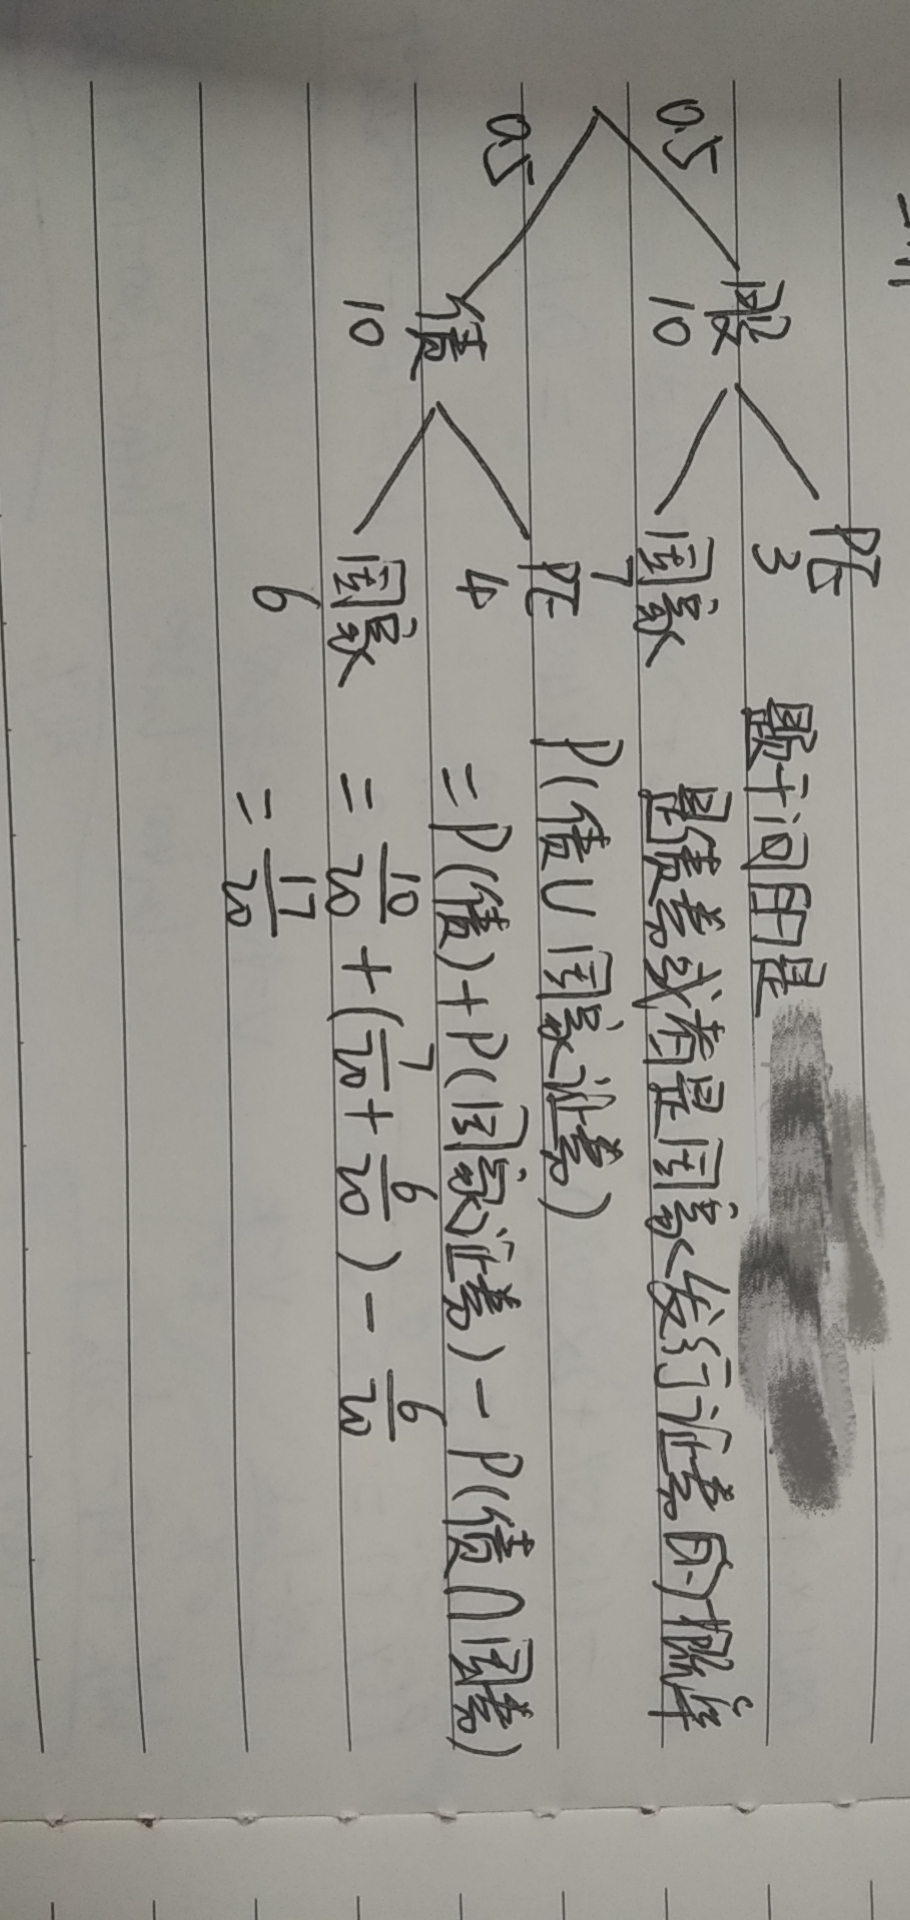 0.5
股
10
PE
3
国家
7
0.5
债
10
PE
4
国家
6
题干问的是
是债券或者是国家发行证券的概率
P(债∪国家证券)
=P(债)+P(国家证券)-P(债∩国券)
=10/20+(7/20+6/20)-6/20
=17/20